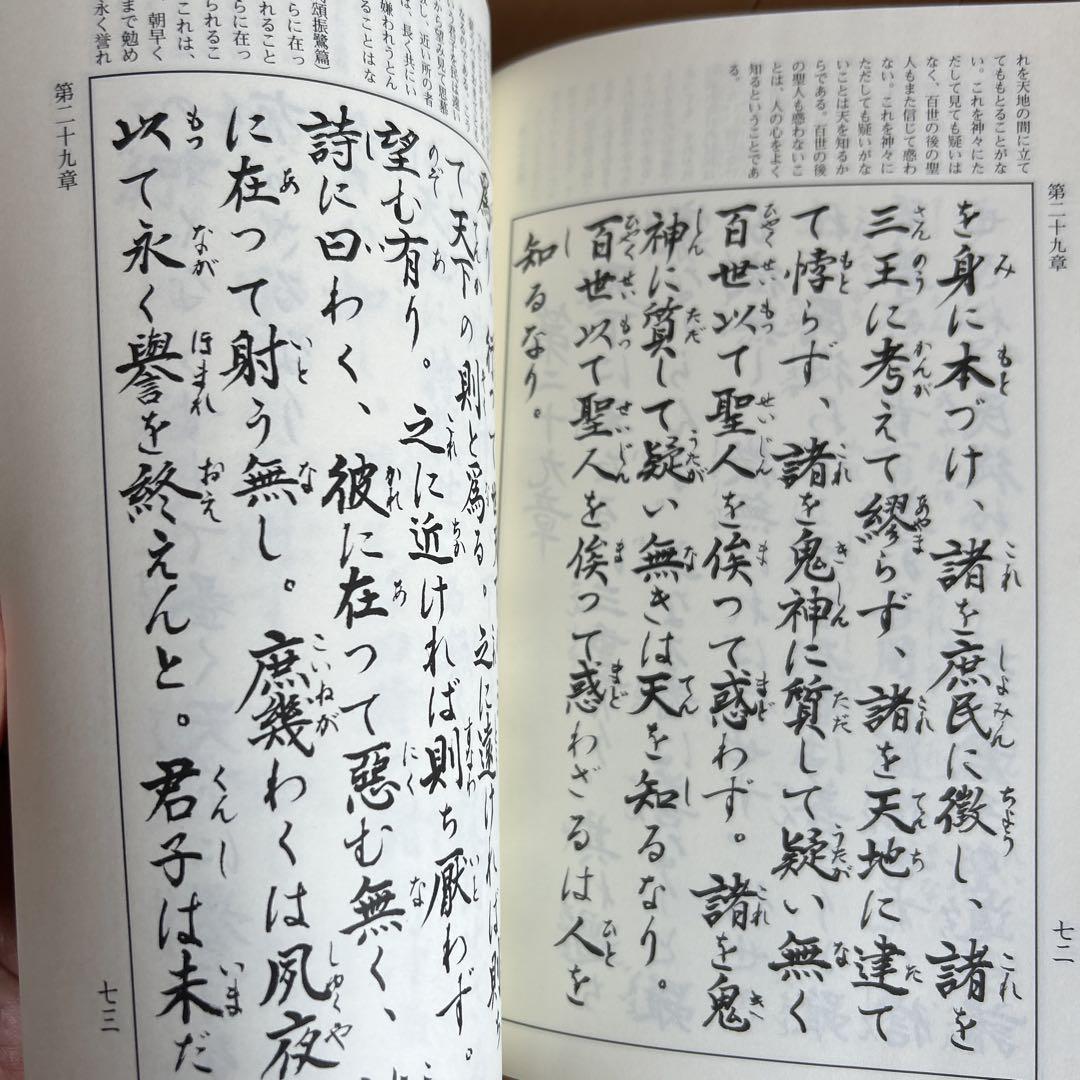 れを天地の間に立て
てももとることがな
い。これを神々にた
だして見ても疑いは
なく、百世の後の聖
人もまた信じて惑わ
ない。これを神々に
ただしても疑いがな
いことは天を知るか
らである。百世の後
の聖人も惑わないこ
とは、人の心をよく
知るということであ
る。
第二十九章
を身に本づけ、諸を庶民に徴し、諸を
三王に考えて繆らず、諸を天地に建て
て悖らず、諸を鬼神に質して疑い無く
百世以て聖人を俟って惑わず。諸を鬼
神に質して疑い無きは天を知るなり。
百世以て聖人を俟って惑わざるは人を
知るなり。
七二
る君子を民は遠い
から望み見て思慕
し、近い所の者
は、長く共にい
嫌われうとん
ることはな
頌振鷺篇)
らに在っ
れること
らに在っ
られるこ
これは、
朝早く
まで勉め
永く誉れ
て天下の則と為る。之に遠ければ則
望む有り。之に近ければ則ち厭わず。
詩に曰わく、彼に在って悪む無く、
に在って射う無し。庶幾わくは夙夜
以て永く誉を終えんと。君子は未だ
第二十九章
七三